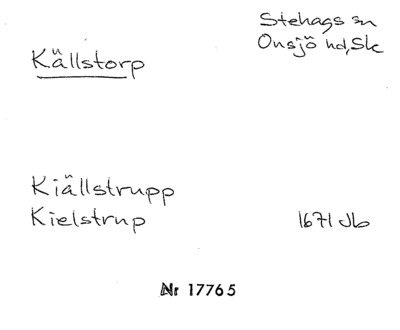 Stehags sn
Onsjö hd, Sk
Källstorp
Kiällstrupp
Kielstrup 1671 Jb
Nr 17765